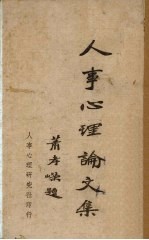 人事心理論文集
蕭孝嶸題
人事心理研究社印行